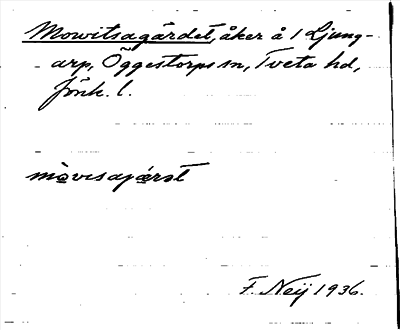 Mowitsagärdet, åker å 1 Ljung-
arp, Öggestorps sn, Tveta hd,
Jönk. l.
F. Neij 1936.